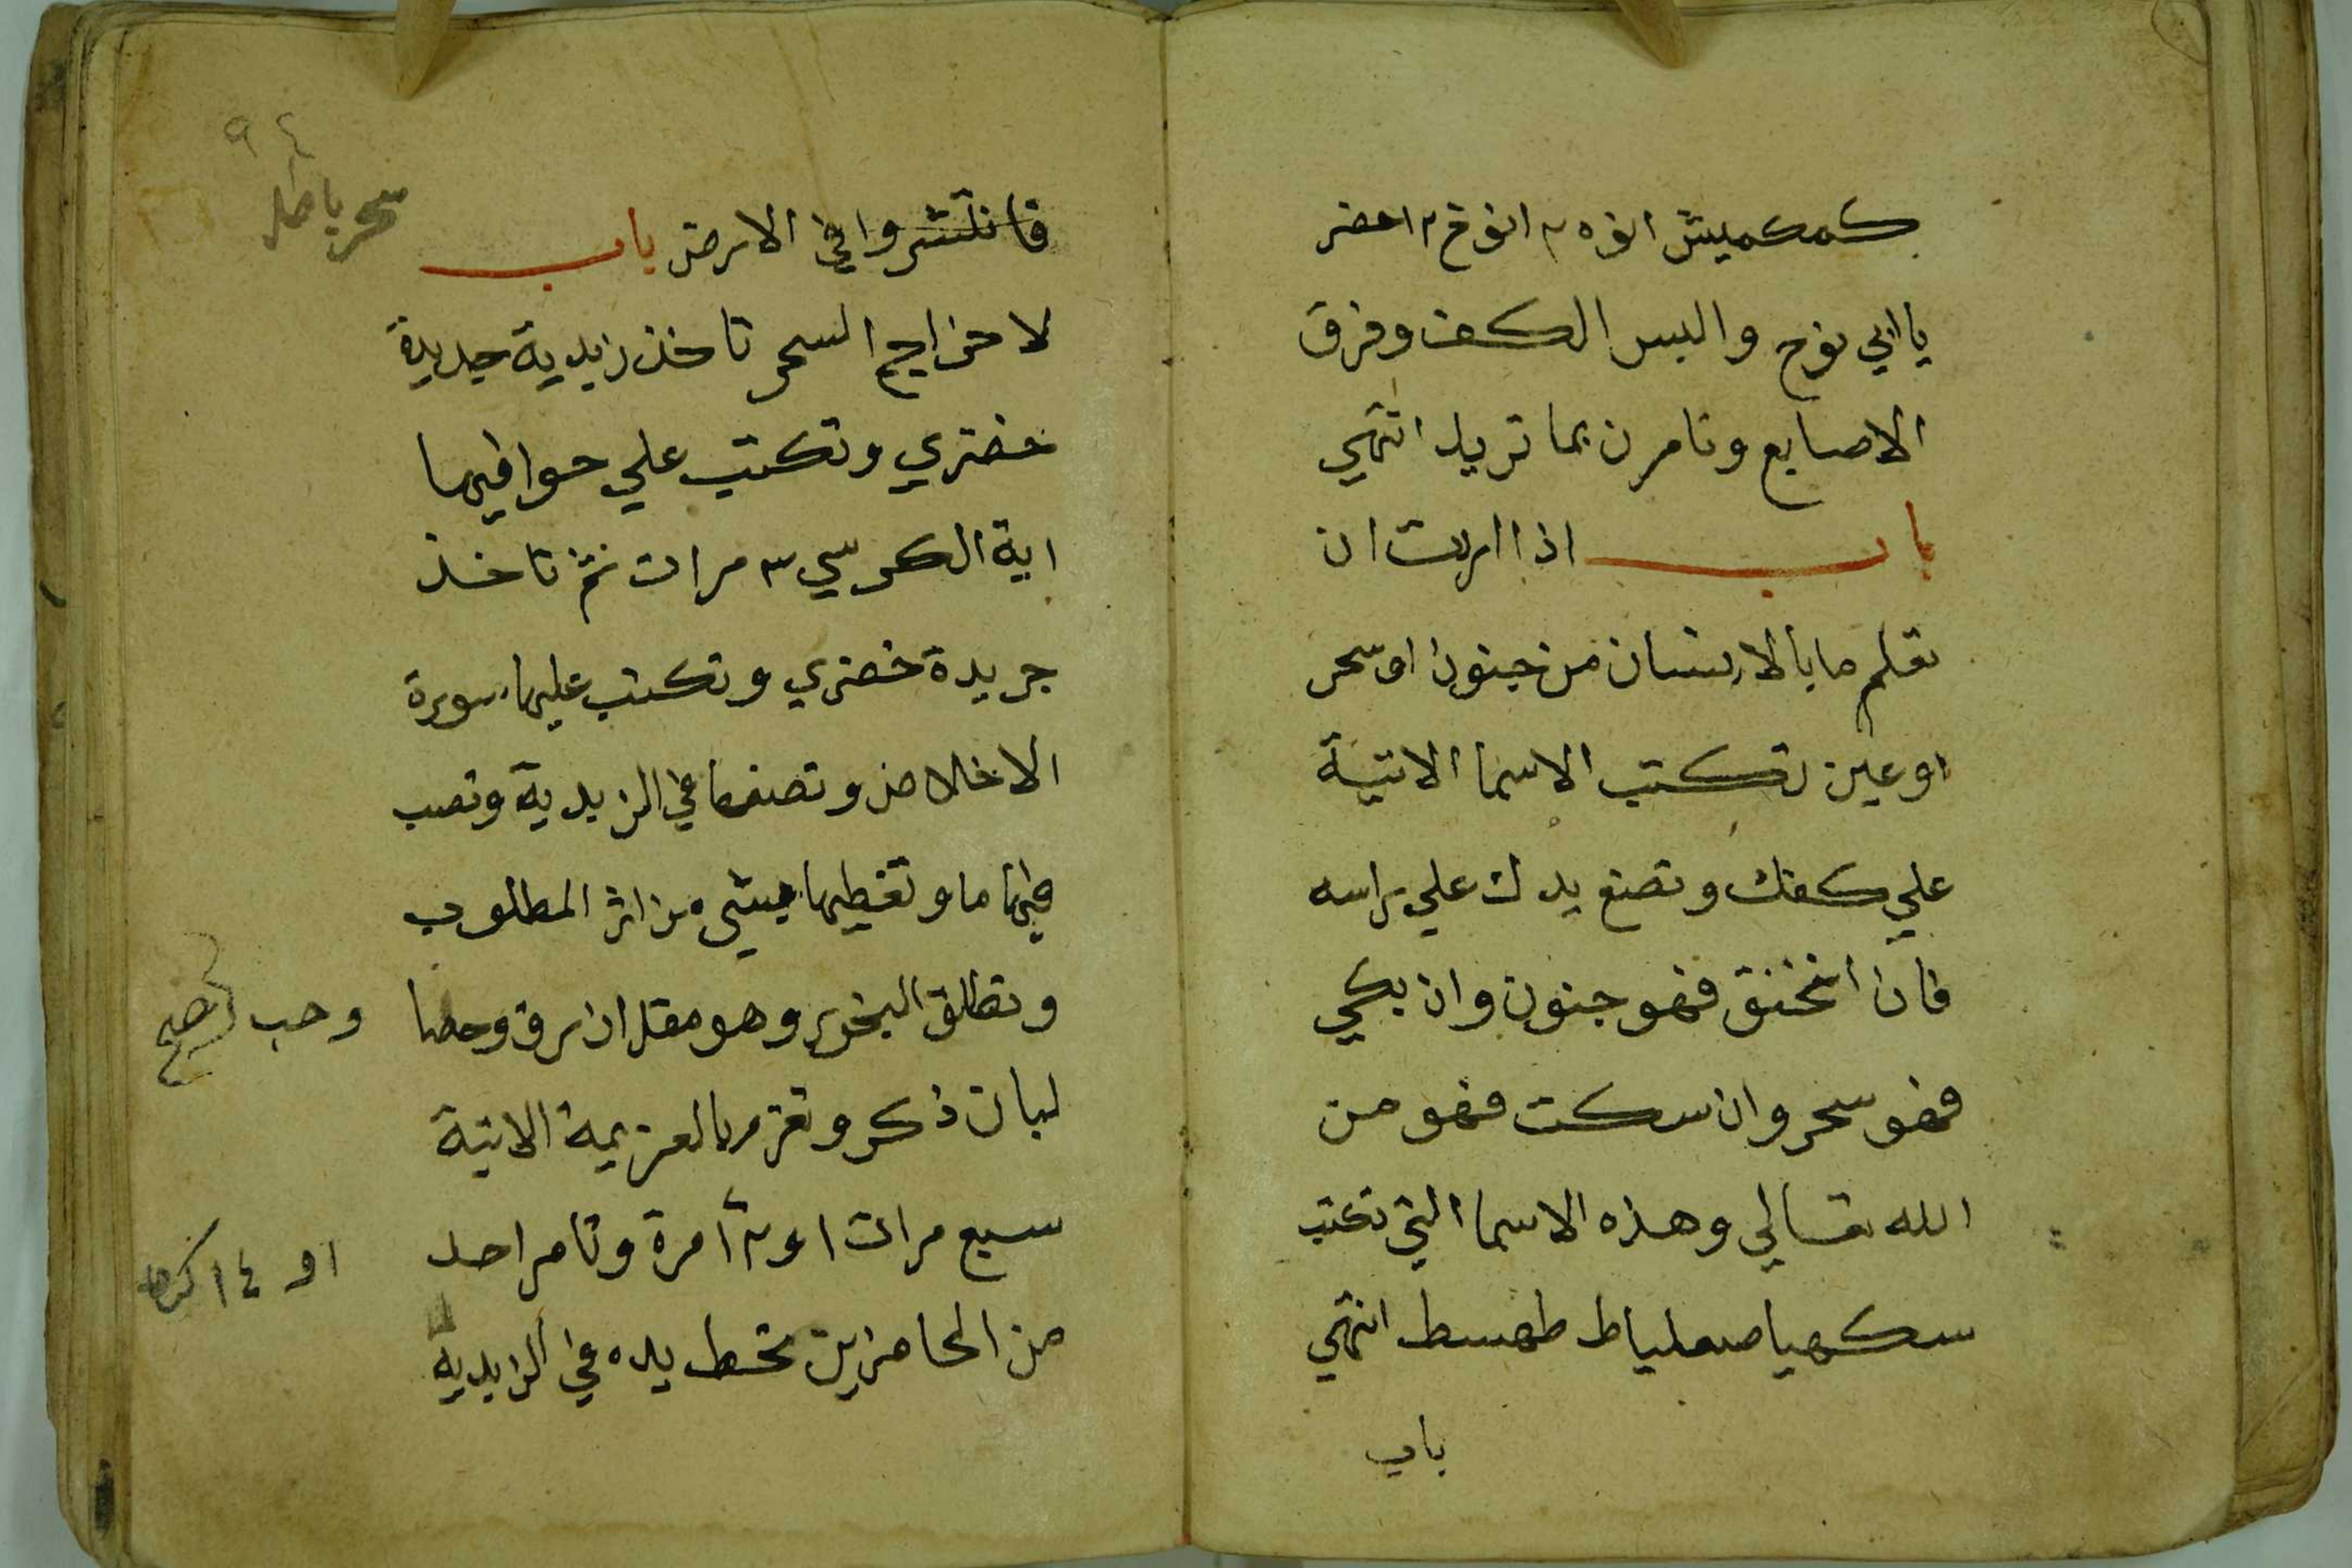 كمكميش انوه ٢ انوخ ٢ احضر
يا ابي نوح والبس الكف وفرق
الاصابع وتامرن بما تريد انتهي
باب اذا اردت ان
تعلم ما بالانسان من جنون او سحر
او عين تكتب الاسما الاتية
علي كفك وتضع يدك علي راسه
فان انخنق فهو جنون وان بكي
فهو سحر وان سكت فهو من
الله تعالي وهذه الاسما التي تكتب
سكهيا صعلياط طهسط انتهي
باب
٩٤
سحر باطله
فانتشروا في الارض باب
لاخراج السحر تاخذ زبدية جديدة
خضري وتكتب علي حوافيها
اية الكرسي ٣ مرات ثم تاخذ
جريدة خضري وتكتب عليها سورة
الاخلاص وتضعها في الزبدية وتصب
فيها ما وتغطيها بشيء من اثر المطلوب
وتطلق البخور وهو مقل ازرق وحصا
وحب صح
لبان ذكر وتعزم بالعزيمة الاتية
سبع مرات او ٢١ مرة وتامر احد
او ١٤
من الحاضرين تحط يده في الزبدية